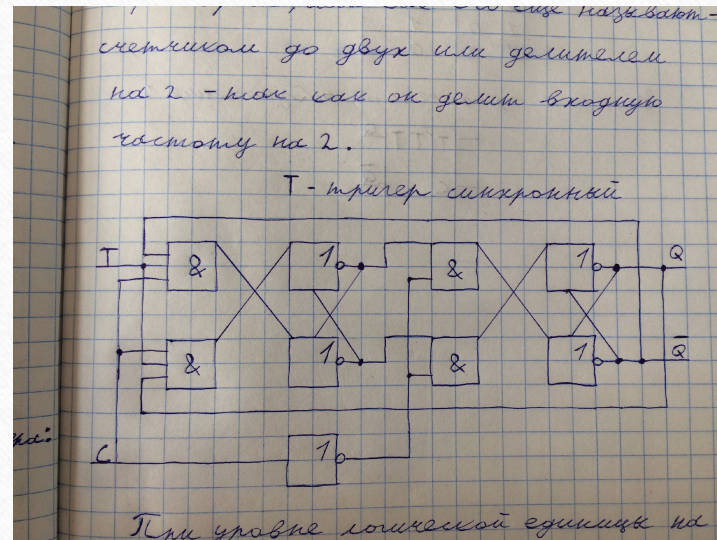 называют-
счетчиком до двух или делителем
на 2 - так как он делит входную
частоту на 2.
T - тригер синхронный
T & 1 & 1 Q
& 1 & 1 Q̅
C 1
При уровне логической единицы на